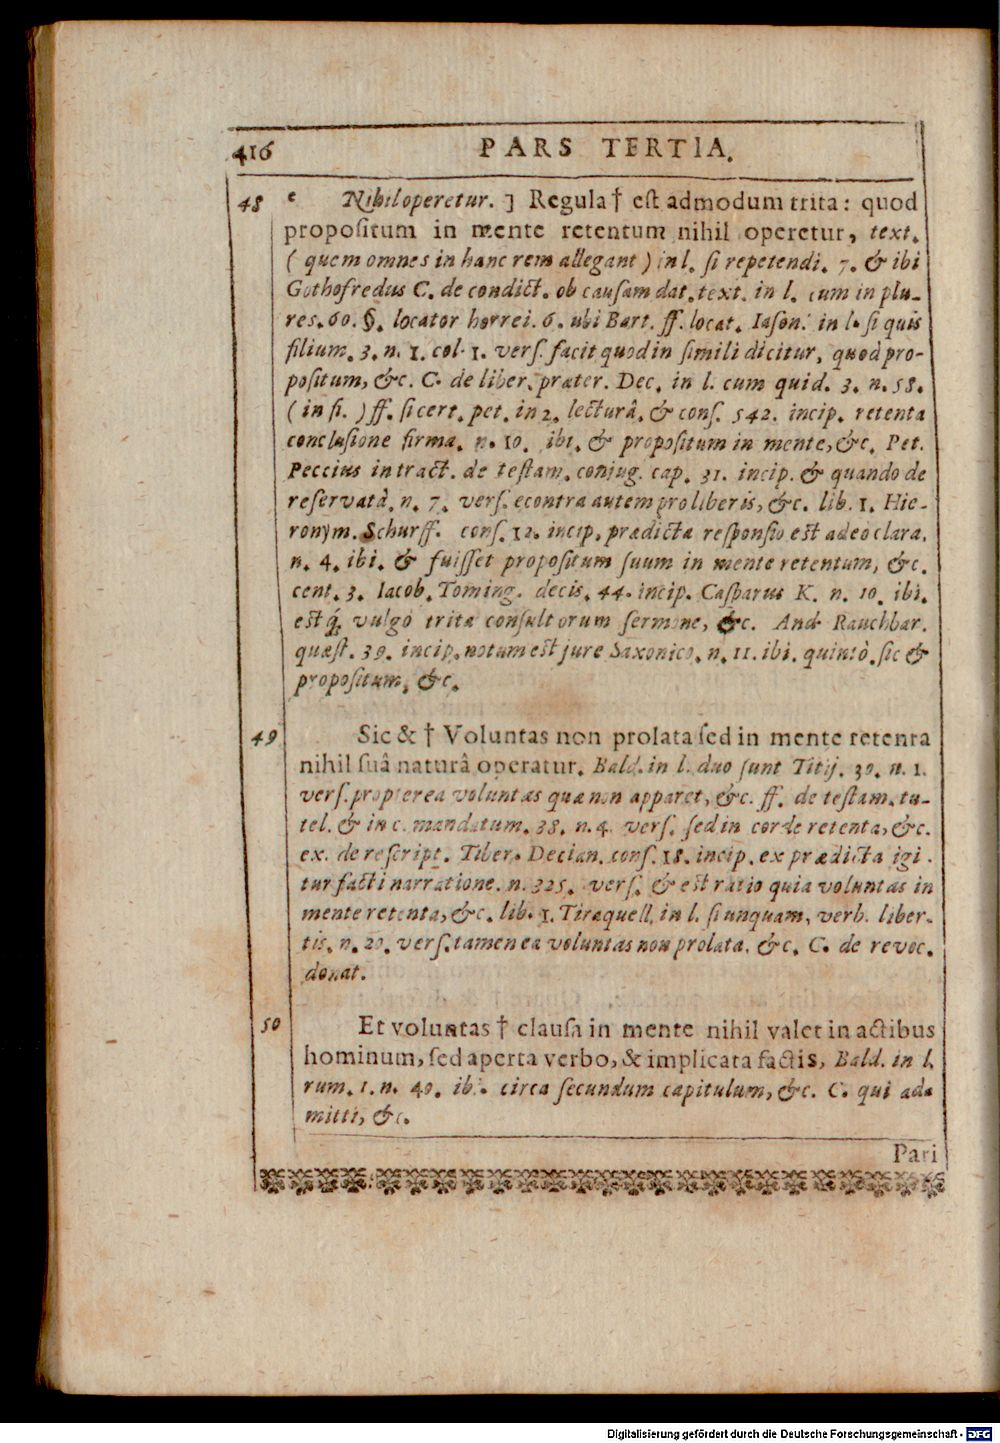 416 PARS TERTIA.
48 e Nihil operetur. ] Regula † est admodum trita: quod
propositum in mente retentum nihil operetur, text.
( quem omnes in hanc rem allegant ) in l. si repetendi. 7. & ibi
Gothofredus C. de condict. ob causam dat. text. in l. cum in plu-
res. 60. §. locator horrei. 6. ubi Bart. ff. locat. Iason. in l. si quis
filium. 3. n. 1. col. 1. vers. facit quod in simili dicitur, quod pro-
positum, &c. C. de liber. præter. Dec. in l. cum quid. 3. n. 58.
( in fi. ) ff. si cert. pet. in 2. lecturâ, & cons. 542. incip. retenta
conclusione firma. n. 10. ibi. & propositum in mente, &c. Pet.
Peccius in tract. de testam. conjug. cap. 31. incip. & quando de
reservatâ. n. 7. vers. econtra autem pro liberis, &c. lib. 1. Hie-
ronym. Schurff. cons. 12. incip. prædicta responsio est adeo clara.
n. 4. ibi. & fuisset propositum suum in mente retentum, &c.
cent. 3. Iacob. Toming. decis. 44. incip. Casparus K. n. 10. ibi.
estq́; vulgò trita consultorum sermone, &c. And. Rauchbar.
quæst. 39. incip. notum est jure Saxonico. n. 11. ibi. quintò. sic &
propositum, &c.
49 Sic & † Voluntas non prolata sed in mente retenta
nihil suâ naturâ operatur. Bald. in l. duo sunt Titij. 30. n. 1.
vers. propterea voluntas quæ non apparet, &c. ff. de testam. tu-
tel. & in c. mandatum. 38. n. 4. vers. sed in corde retenta, &c.
ex. de rescript. Tiber. Decian. cons. 18. incip. ex prædicta igi-
tur facti narratione. n. 325. vers. & est ratio quia voluntas in
mente retenta, &c. lib. 1. Tiraquell. in l. si unquam, verb. liber-
tis. n. 20. vers. tamen ea voluntas non prolata, &c. C. de revoc.
donat.
50 Et voluntas † clausa in mente nihil valet in actibus
hominum, sed aperta verbo, & implicata factis, Bald. in l.
rum. 1. n. 40. ibi. circa secundum capitulum, &c. C. qui ad
mitti, &c.
Pari
Digitalisierung gefördert durch die Deutsche Forschungsgemeinschaft - DFG